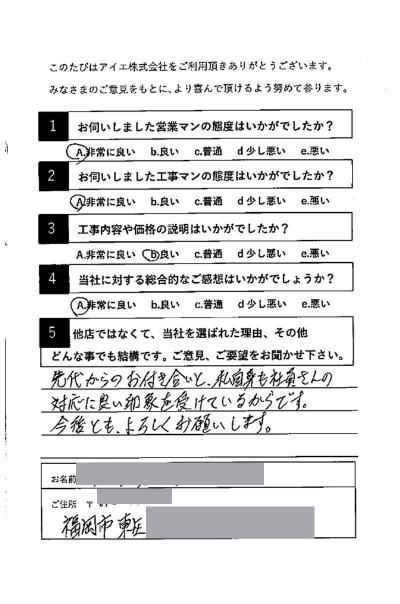 このたびはアイエ株式会社をご利用頂きありがとうございます。
みなさまのご意見をもとに、より喜んで頂けるよう努めて参ります。
1 お伺いしました営業マンの態度はいかがでしたか？
A.非常に良い b.良い c.普通 d少し悪い e.悪い
2 お伺いしました工事マンの態度はいかがでしたか？
A.非常に良い b.良い c.普通 d少し悪い e.悪い
3 工事内容や価格の説明はいかがでしたか？
A.非常に良い b.良い c.普通 d少し悪い e.悪い
4 当社に対する総合的なご感想はいかがでしょうか？
A.非常に良い b.良い c.普通 d少し悪い e.悪い
5 他店ではなくて、当社を選ばれた理由、その他
どんな事でも結構です。ご意見、ご要望をお聞かせ下さい。
先代からのお付き合いと、私自身も社員さんの
対応に良い印象を受けているからです。
今後とも、よろしくお願いします。
お名前
ご住所 〒
福岡市東区